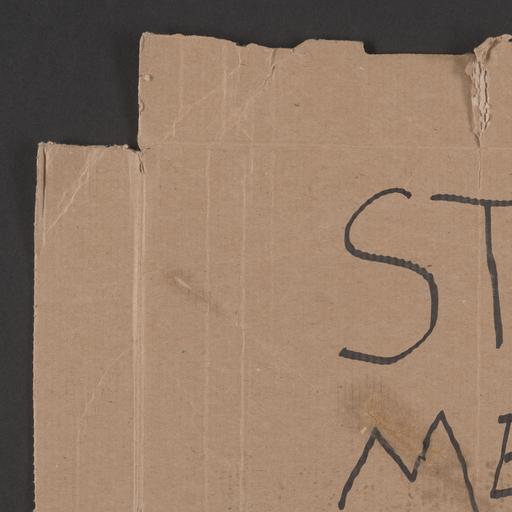 ST
ME